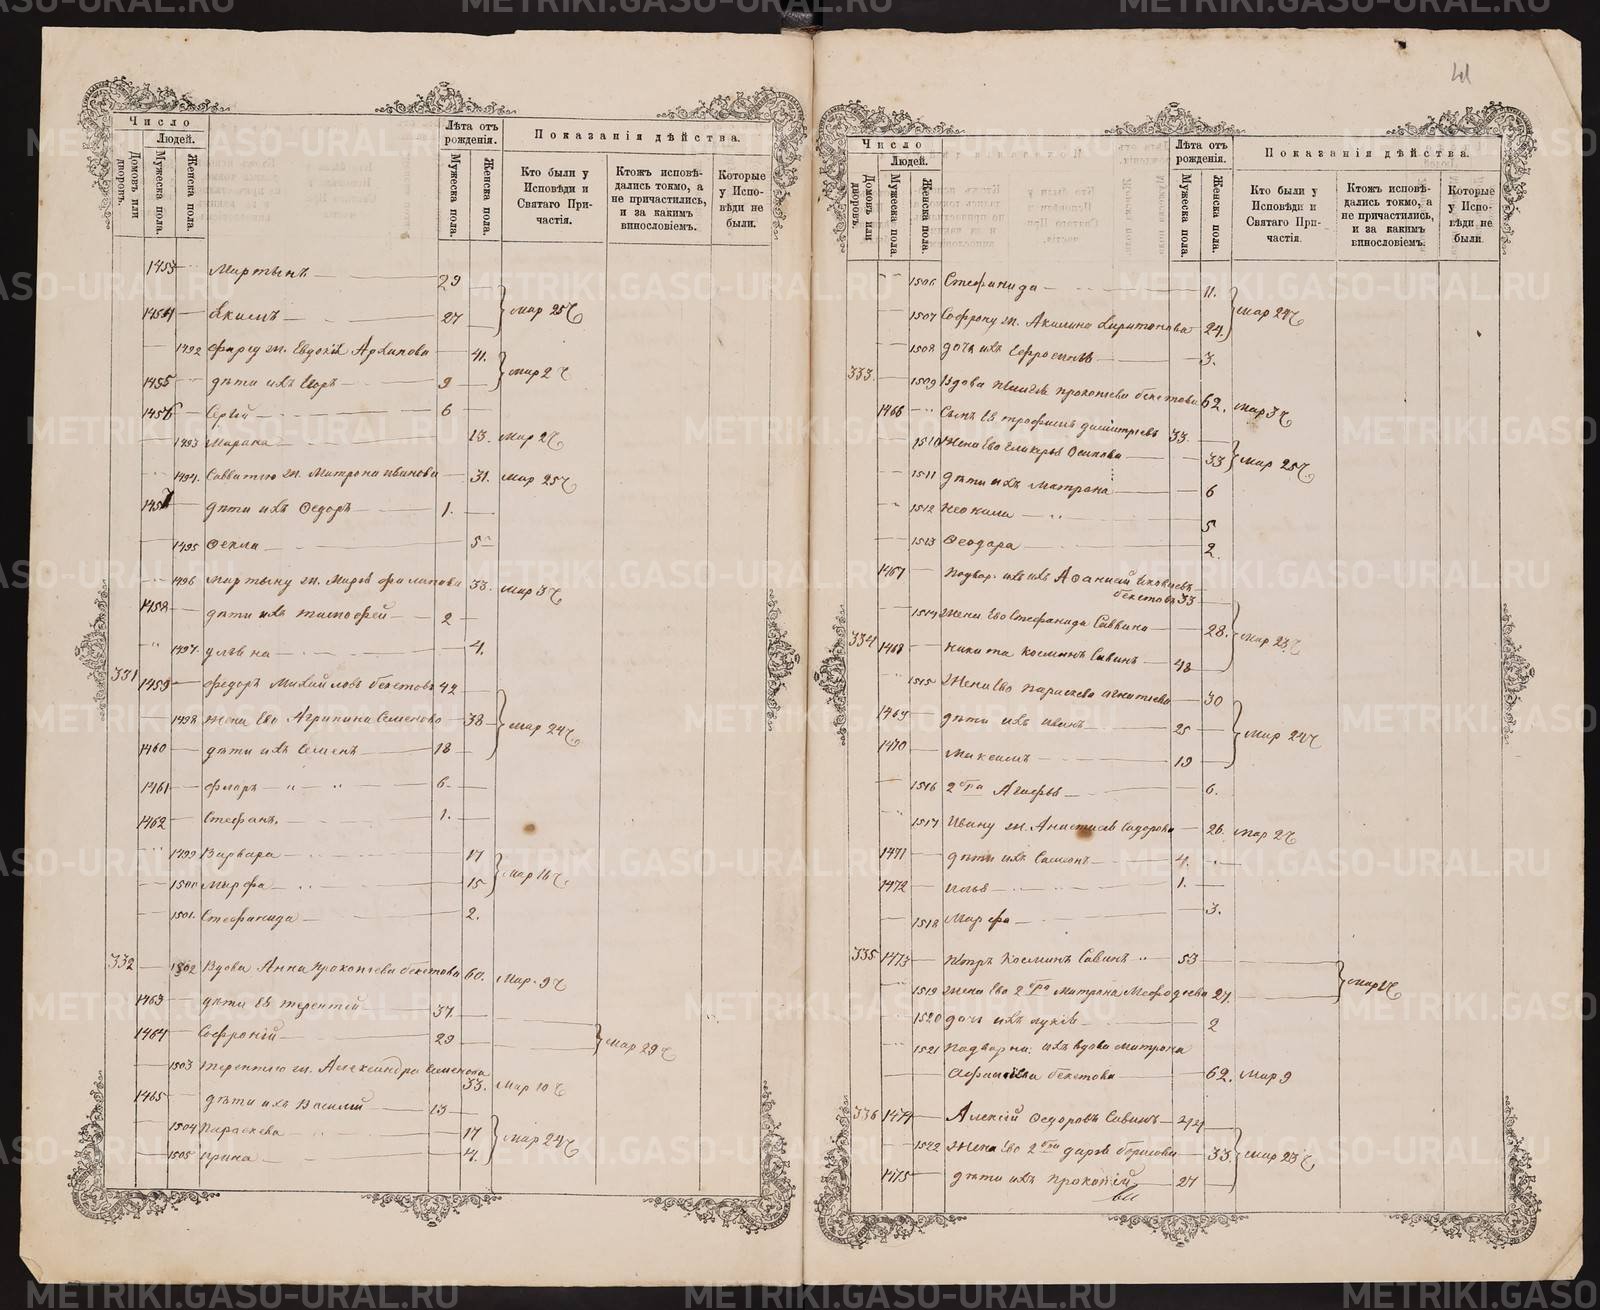 41
Число
Людей.
Домовъ или дворовъ.
Мужеска пола.
Женска пола.
Лѣта отъ рожденія.
Мужеска пола.
Женска пола.
Показанія дѣйства.
Кто были у Исповѣди и Святаго Причастія.
Ктожъ исповѣдались токмо, а не причастились, и за какимъ винословіемъ.
Которые у Исповѣди не были.
1453 Мартынъ 29
1454 Екимъ 27 Мар 25 ч
1492 ж. Евдокія Архипова 41.
1455 дѣти ихъ Егоръ 9 Мар 2 ч
1456 Сергѣй 6
1493 Марина 13. Мар 2 ч
1494. Савватію ж. Матрона Иванова 31. Мар 25 ч
1457 дѣти ихъ Ѳедоръ 1.
1495 Ѳекла 5
1496 Мартыну ж. Марѳа Филипова 33. Мар 3 ч
1458 дѣти ихъ Тимофей 2
1497. 4.
331 1459 Федоръ Михайловъ Бекетовъ 42
1498 Жена Его Агрипина Семенова 38 Мар 24 ч
1460 дѣти ихъ Семенъ 18
1461 Флоръ 6.
1462 Стефанъ. 1.
1499 Варвара 17
1500 Марфа 15 Мар 16 ч
1501. Стефанида 2.
332 1502 Вдова Анна Прокопьева Бекетова 60. Мар. 9 ч
1463 дѣти Ея Терентій 37.
1464 Софроній 29 Мар 29 ч
1503 Терентію ж. Александра Семенова 33. Мар 10 ч
1465 дѣти ихъ Василій 13
1504 Параскева 17 Мар 24 ч
1505 Ирина 4.
Число
Людей.
Домовъ или дворовъ.
Мужеска пола.
Женска пола.
Лѣта отъ рожденія.
Мужеска пола.
Женска пола.
Показанія дѣйства.
Кто были у Исповѣди и Святаго Причастія.
Ктожъ исповѣдались токмо, а не причастились, и за какимъ винословіемъ.
Которые у Исповѣди не были.
1506 Стефанида 11.
1507 Софрону ж. Акилина Харитонова 24. Мар 24 ч
1508 дочь ихъ Ефросинья 3.
333. 1509 Вдова Прокопьева Бекетова 62. Мар 3 ч
1466 Сынъ Ея Трофимъ Димитріевъ 33.
1510 Жена Его Гликерья Осипова 33 Мар 25 ч
1511 дѣти ихъ Матрона 6
1512 Неонила 5
1513 Ѳеодора 2.
1467 Подвор. ихъ Афанасій Яковлевъ
Бекетовъ 33
1514 Жена Его Стефанида Саввина 28. Мар 23 ч
334 1468 Никита Косминъ Савинъ 48
1515 Жена Его Параскева Игнатьева 30
1469 дѣти ихъ Иванъ 25 Мар 24 ч
1470 Максимъ 19
1516 2 бра Агафья 6.
1517 Ивану ж. Анастасія Сидорова 26. Мар 2 ч
1471 дѣти ихъ Самсонъ 4.
1472 Илья 1.
1518 Марфа 3.
335 1473 Петръ Косминъ Савинъ 53
1519 Жена Его 2 бра Матрона Меѳодіева 27. Мар 2 ч
1520 дочь ихъ 2
1521 Подворн: ихъ вдова Матрона
Афанасьева Бекетова 62. Мар 9
336 1474 Алексій Ѳедоровъ Савинъ 44
1522 Жена Его 2 бра Дарья Борисова 33. Мар 23 ч
1475 дѣти ихъ Прокопій 27
METRIKI.GASO-URAL.RU